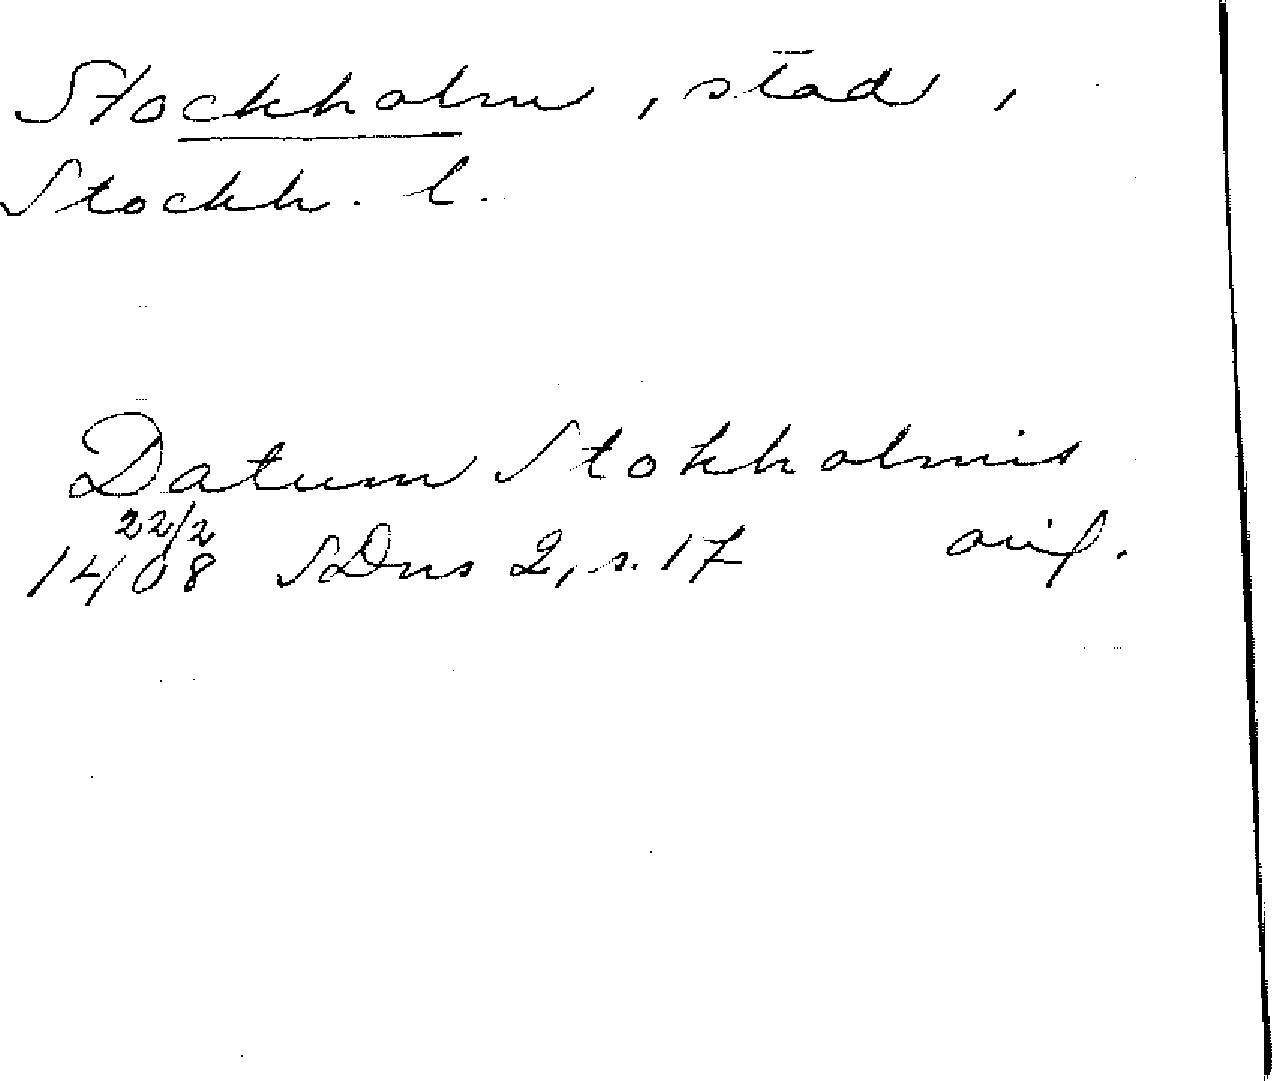 Stockholm, stad,
Stockh. l.
Datum Stokholmis
22/2
1408 SDns 2, s. 17 avif.